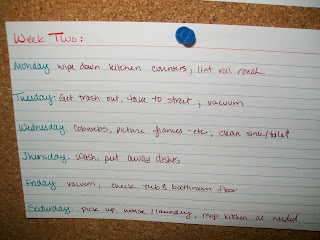 Week Two:
Monday: wipe down kitchen counters, lint roll couch
Tuesday: Get trash out, take to street, vacuum
Wednesday: Cobwebs, picture frames - etc, clean sink/toilet
Thursday: Wash, put away dishes
Friday vacuum, check tub & bathroom floor
Saturday: pick up house/laundry, mop kitchen as needed